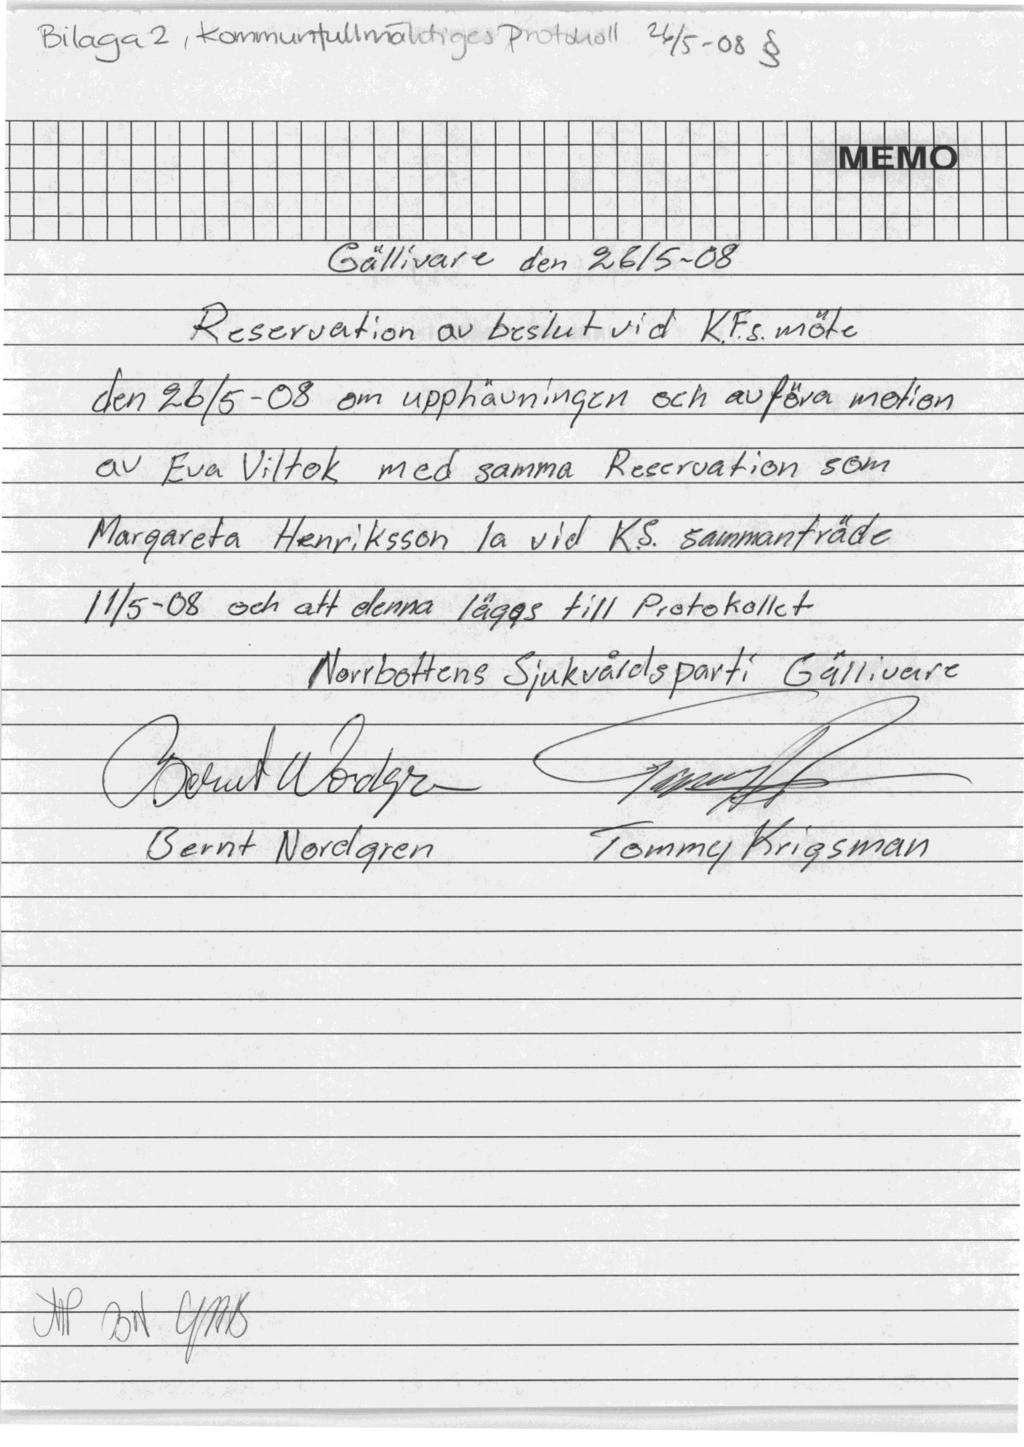 Bilaga 2, Kommunfullmäktiges Protokoll 26/5-08 §
MEMO
Gällivare den 26/5-08
Reservation av beslut vid K.F.s. möte
den 26/5-08 om upphävningen och avföra motion
av Eva Viltok med samma Reservation som
Margareta Henriksson la vid K.S. sammanträde
11/5-08 och att denna läggs till Protokollet
Norrbottens Sjukvårdsparti Gällivare
Bernt Nordgren
Bernt Nordgren Tommy Krigsman
BN